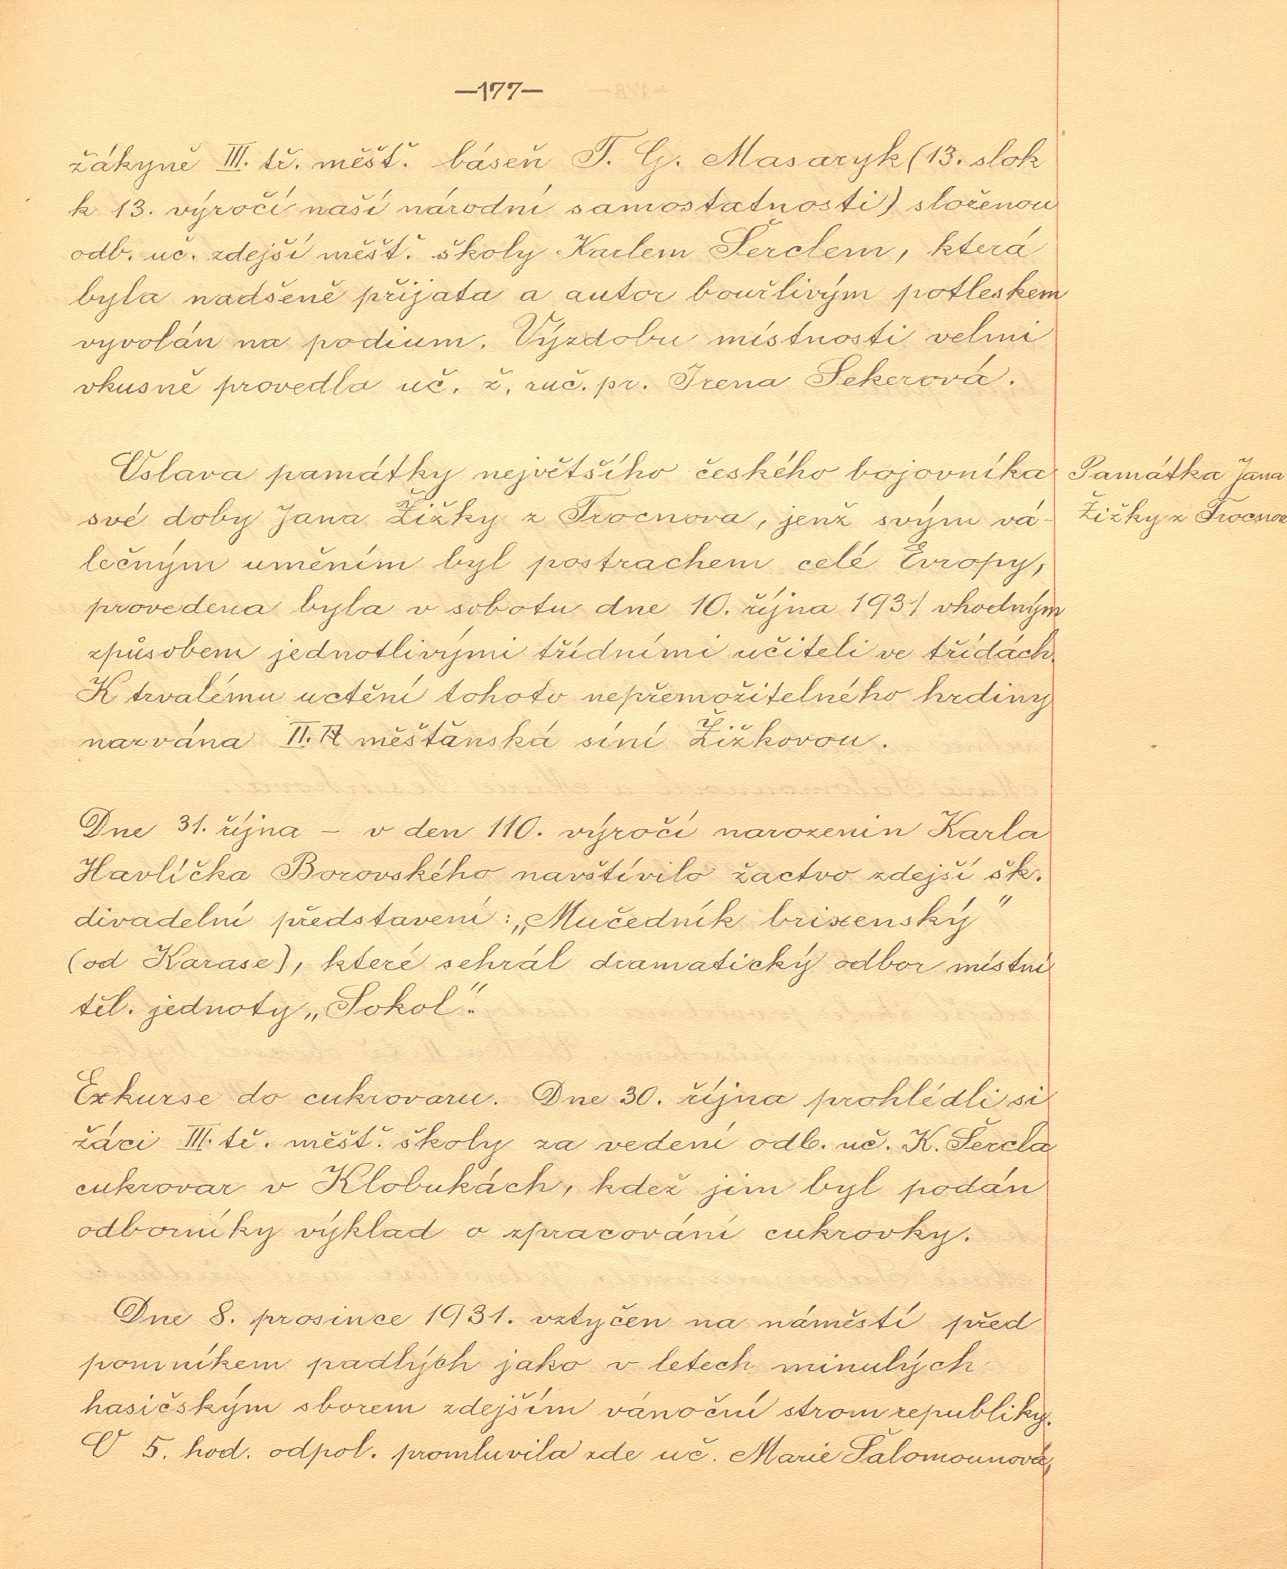 —177—
žákyně III. tř. měšť. báseň T. G. Masaryk (13. slok
k 13. výročí naší národní samostatnosti) složenou
odb. uč. zdejší měšť. školy Karlem Šerclem, která
byla nadšeně přijata a autor bouřlivým potleskem
vyvolán na podium. Výzdobu místnosti velmi
vkusně provedla uč. ž. ruč. pr. Irena Sekerová.
Oslava památky největšího českého bojovníka
Památka Jana
své doby Jana Žižky z Trocnova, jenž svým vá-
Žižky z Trocnov
lečným uměním byl postrachem celé Evropy,
provedena byla v sobotu dne 10. října 1931 vhodným
způsobem jednotlivými třídními učiteli ve třídách.
K trvalému uctění tohoto nepřemožitelného hrdiny
nazvána II. A měšťanská síní Žižkovou.
Dne 31. října – v den 110. výročí narozenin Karla
Havlíčka Borovského navštívilo žactvo zdejší šk.
divadelní představení: „Mučedník brixenský"
(od Karase), které sehrál dramatický odbor místní
těl. jednoty „Sokol".
Exkurse do cukrovaru. Dne 30. října prohlédli si
žáci III. tř. měšť. školy za vedení odb. uč. K. Šercla
cukrovar v Klobukách, kdež jim byl podán
odborníky výklad o zpracování cukrovky.
Dne 8. prosince 1931. vztyčen na náměstí před
pomníkem padlých jako v letech minulých
hasičským sborem zdejším vánoční strom republiky.
V 5. hod. odpol. promluvila zde uč. Marie Šalomounová,